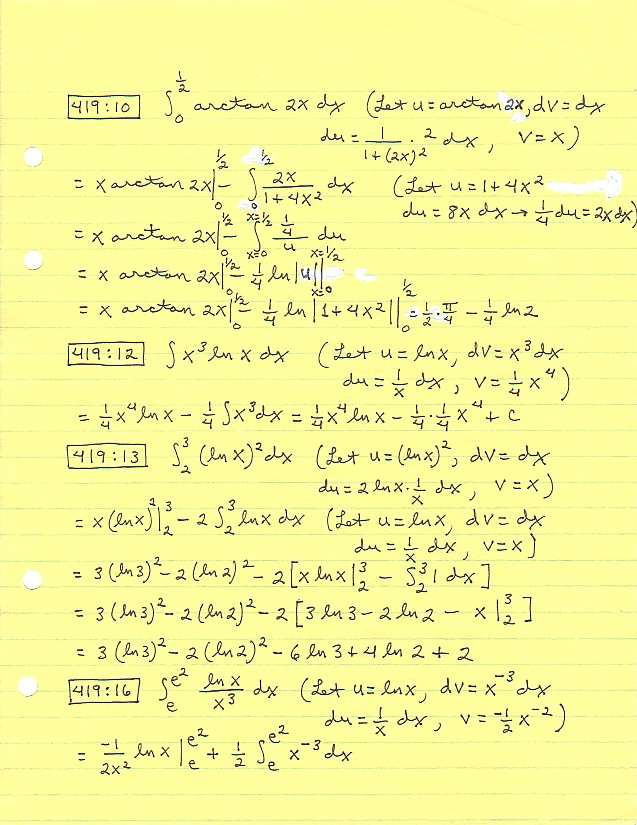 419:10 ∫₀^{1/2} arctan 2x dx (Let u = arctan 2x, dv = dx
du = 1/(1+(2x)²) · 2 dx, v = x)
= x arctan 2x|₀^{1/2} − ∫₀^{1/2} 2x/(1+4x²) dx (Let u = 1+4x²
du = 8x dx → 1/4 du = 2x dx)
= x arctan 2x|₀^{1/2} − ∫_{x=0}^{x=1/2} (1/4)/u du
= x arctan 2x|₀^{1/2} − 1/4 ln|u||_{x=0}^{x=1/2}
= x arctan 2x|₀^{1/2} − 1/4 ln|1+4x²||₀^{1/2} = 1/2 · π/4 − 1/4 ln 2
419:12 ∫ x³ ln x dx (Let u = ln x, dv = x³ dx
du = 1/x dx, v = 1/4 x⁴)
= 1/4 x⁴ ln x − 1/4 ∫ x³ dx = 1/4 x⁴ ln x − 1/4 · 1/4 x⁴ + C
419:13 ∫₂³ (ln x)² dx (Let u = (ln x)², dv = dx
du = 2 ln x · 1/x dx, v = x)
= x (ln x)²|₂³ − 2 ∫₂³ ln x dx (Let u = ln x, dv = dx
du = 1/x dx, v = x)
= 3 (ln 3)² − 2 (ln 2)² − 2 [x ln x|₂³ − ∫₂³ 1 dx]
= 3 (ln 3)² − 2 (ln 2)² − 2 [3 ln 3 − 2 ln 2 − x|₂³]
= 3 (ln 3)² − 2 (ln 2)² − 6 ln 3 + 4 ln 2 + 2
419:16 ∫ₑ^{e²} ln x/x³ dx (Let u = ln x, dv = x⁻³ dx
du = 1/x dx, v = −1/2 x⁻²)
= −1/(2x²) ln x|ₑ^{e²} + 1/2 ∫ₑ^{e²} x⁻³ dx